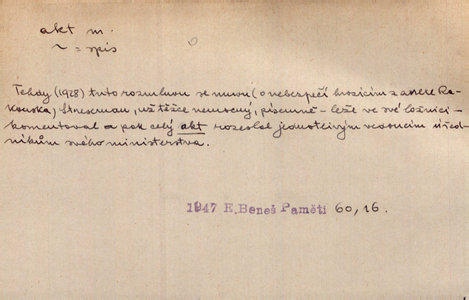 akt m.
~ = spis
Tehdy (1928) tuto rozmluvu se mnou (o nebezpečí hrozícím z anexe Ra-
kouska), Stresemann, už těžce nemocný, písemně – leže ve své ložnici –
komentoval a pak celý akt rozeslal jednotlivým vedoucím úřed-
níkům svého ministerstva.
1947 E. Beneš Paměti 60, 16.